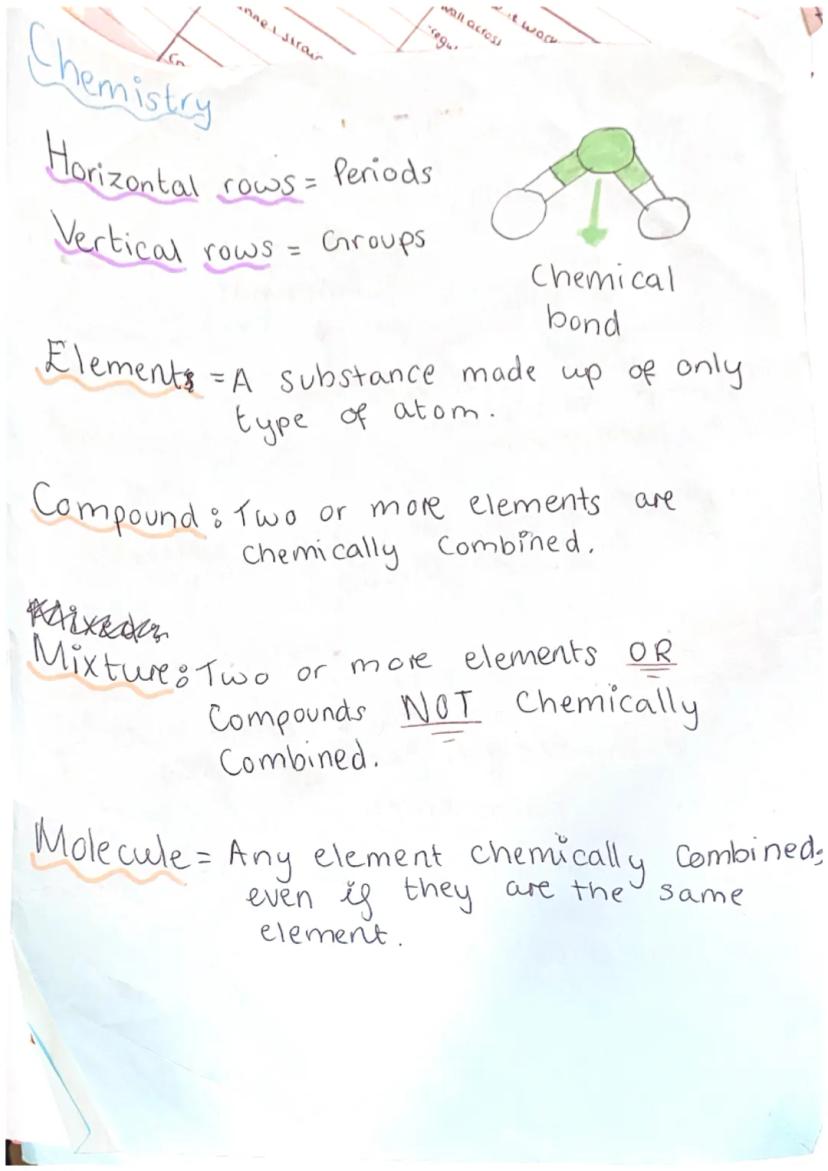 nnel strai
wall across
regu
it work
Chemistry
Horizontal rows = Periods
Vertical rows = Groups
Chemical
bond
Elements = A substance made up of only
type of atom.
Compound : Two or more elements are
Chemically Combined.
Mixture : Two or more elements OR
Compounds NOT Chemically
Combined.
Molecule = Any element chemically Combined,
even if they are the same
element.